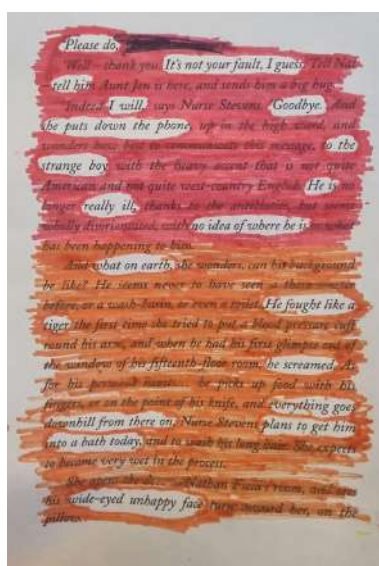 Please do,
Well – thank you. It's not your fault, I guess. Tell Nat
tell him Aunt Jen is here, and sends him a big hug.
Indeed I will, says Nurse Stevens. Goodbye. And
he puts down the phone, up in the high ward, and
wonders how best to communicate this message, to the
strange boy with the heavy accent that is not quite
American and not quite west-country English. He is no
longer really ill, thanks to the antibiotics, but seems
wholly disoriented, with no idea of where he is or what
has been happening to him.
And what on earth, she wonders, can his background
be like? He seems never to have seen a thermometer
before, or a wash-basin, or even a toilet. He fought like a
tiger the first time she tried to put a blood pressure cuff
round his arm, and when he had his first glimpse out of
the window of his fifteenth-floor room, he screamed. As
for his personal habits – he picks up food with his
fingers, or on the point of his knife, and everything goes
downhill from there on. Nurse Stevens plans to get him
into a bath today, and to wash his long hair. She expects
to become very wet in the process.
She opens the door of Nathan Field's room, and sees
his wide-eyed unhappy face turn toward her, on the
pillow.